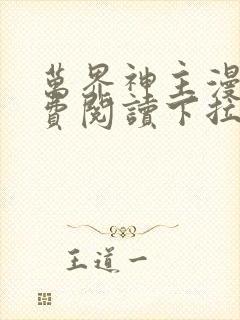 萬界神主漫
費閱讀下拉
王道一